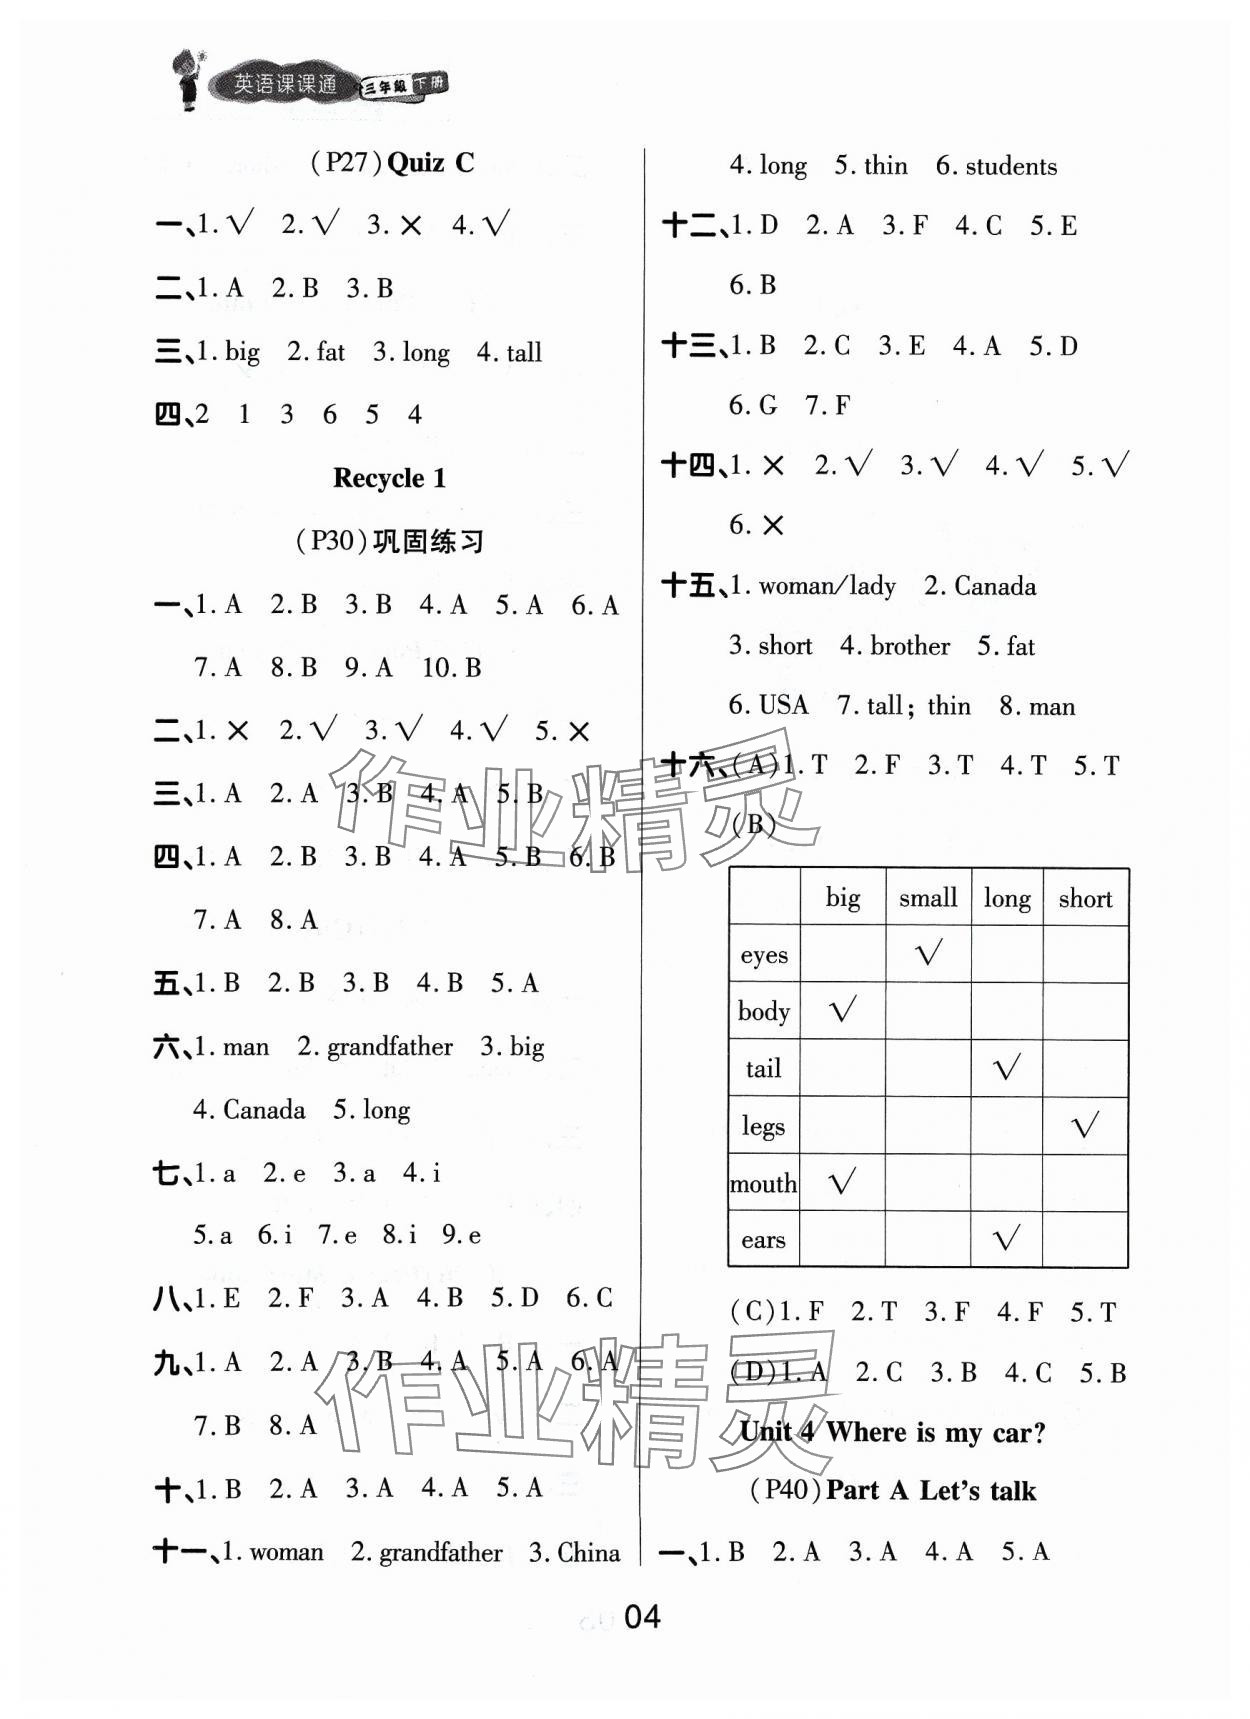 英语课课通 三年级 下册
(P27)Quiz C
一、1.√ 2.√ 3.× 4.√
二、1.A 2.B 3.B
三、1.big 2.fat 3.long 4.tall
四、2 1 3 6 5 4
Recycle 1
(P30)巩固练习
一、1.A 2.B 3.B 4.A 5.A 6.A
7.A 8.B 9.A 10.B
二、1.× 2.√ 3.√ 4.√ 5.×
三、1.A 2.A 3.B 4.A 5.B
四、1.A 2.B 3.B 4.A 5.B 6.B
7.A 8.A
五、1.B 2.B 3.B 4.B 5.A
六、1.man 2.grandfather 3.big
4.Canada 5.long
七、1.a 2.e 3.a 4.i
5.a 6.i 7.e 8.i 9.e
八、1.E 2.F 3.A 4.B 5.D 6.C
九、1.A 2.A 3.B 4.A 5.A 6.A
7.B 8.A
十、1.B 2.A 3.A 4.A 5.A
十一、1.woman 2.grandfather 3.China
4.long 5.thin 6.students
十二、1.D 2.A 3.F 4.C 5.E
6.B
十三、1.B 2.C 3.E 4.A 5.D
6.G 7.F
十四、1.× 2.√ 3.√ 4.√ 5.√
6.×
十五、1.woman/lady 2.Canada
3.short 4.brother 5.fat
6.USA 7.tall; thin 8.man
十六、(A)1.T 2.F 3.T 4.T 5.T
(B)
big small long short
eyes √
body √
tail √
legs √
mouth √
ears √
(C)1.F 2.T 3.F 4.F 5.T
(D)1.A 2.C 3.B 4.C 5.B
Unit 4 Where is my car?
(P40)Part A Let's talk
一、1.B 2.A 3.A 4.A 5.A
04
作业精灵
作业精灵